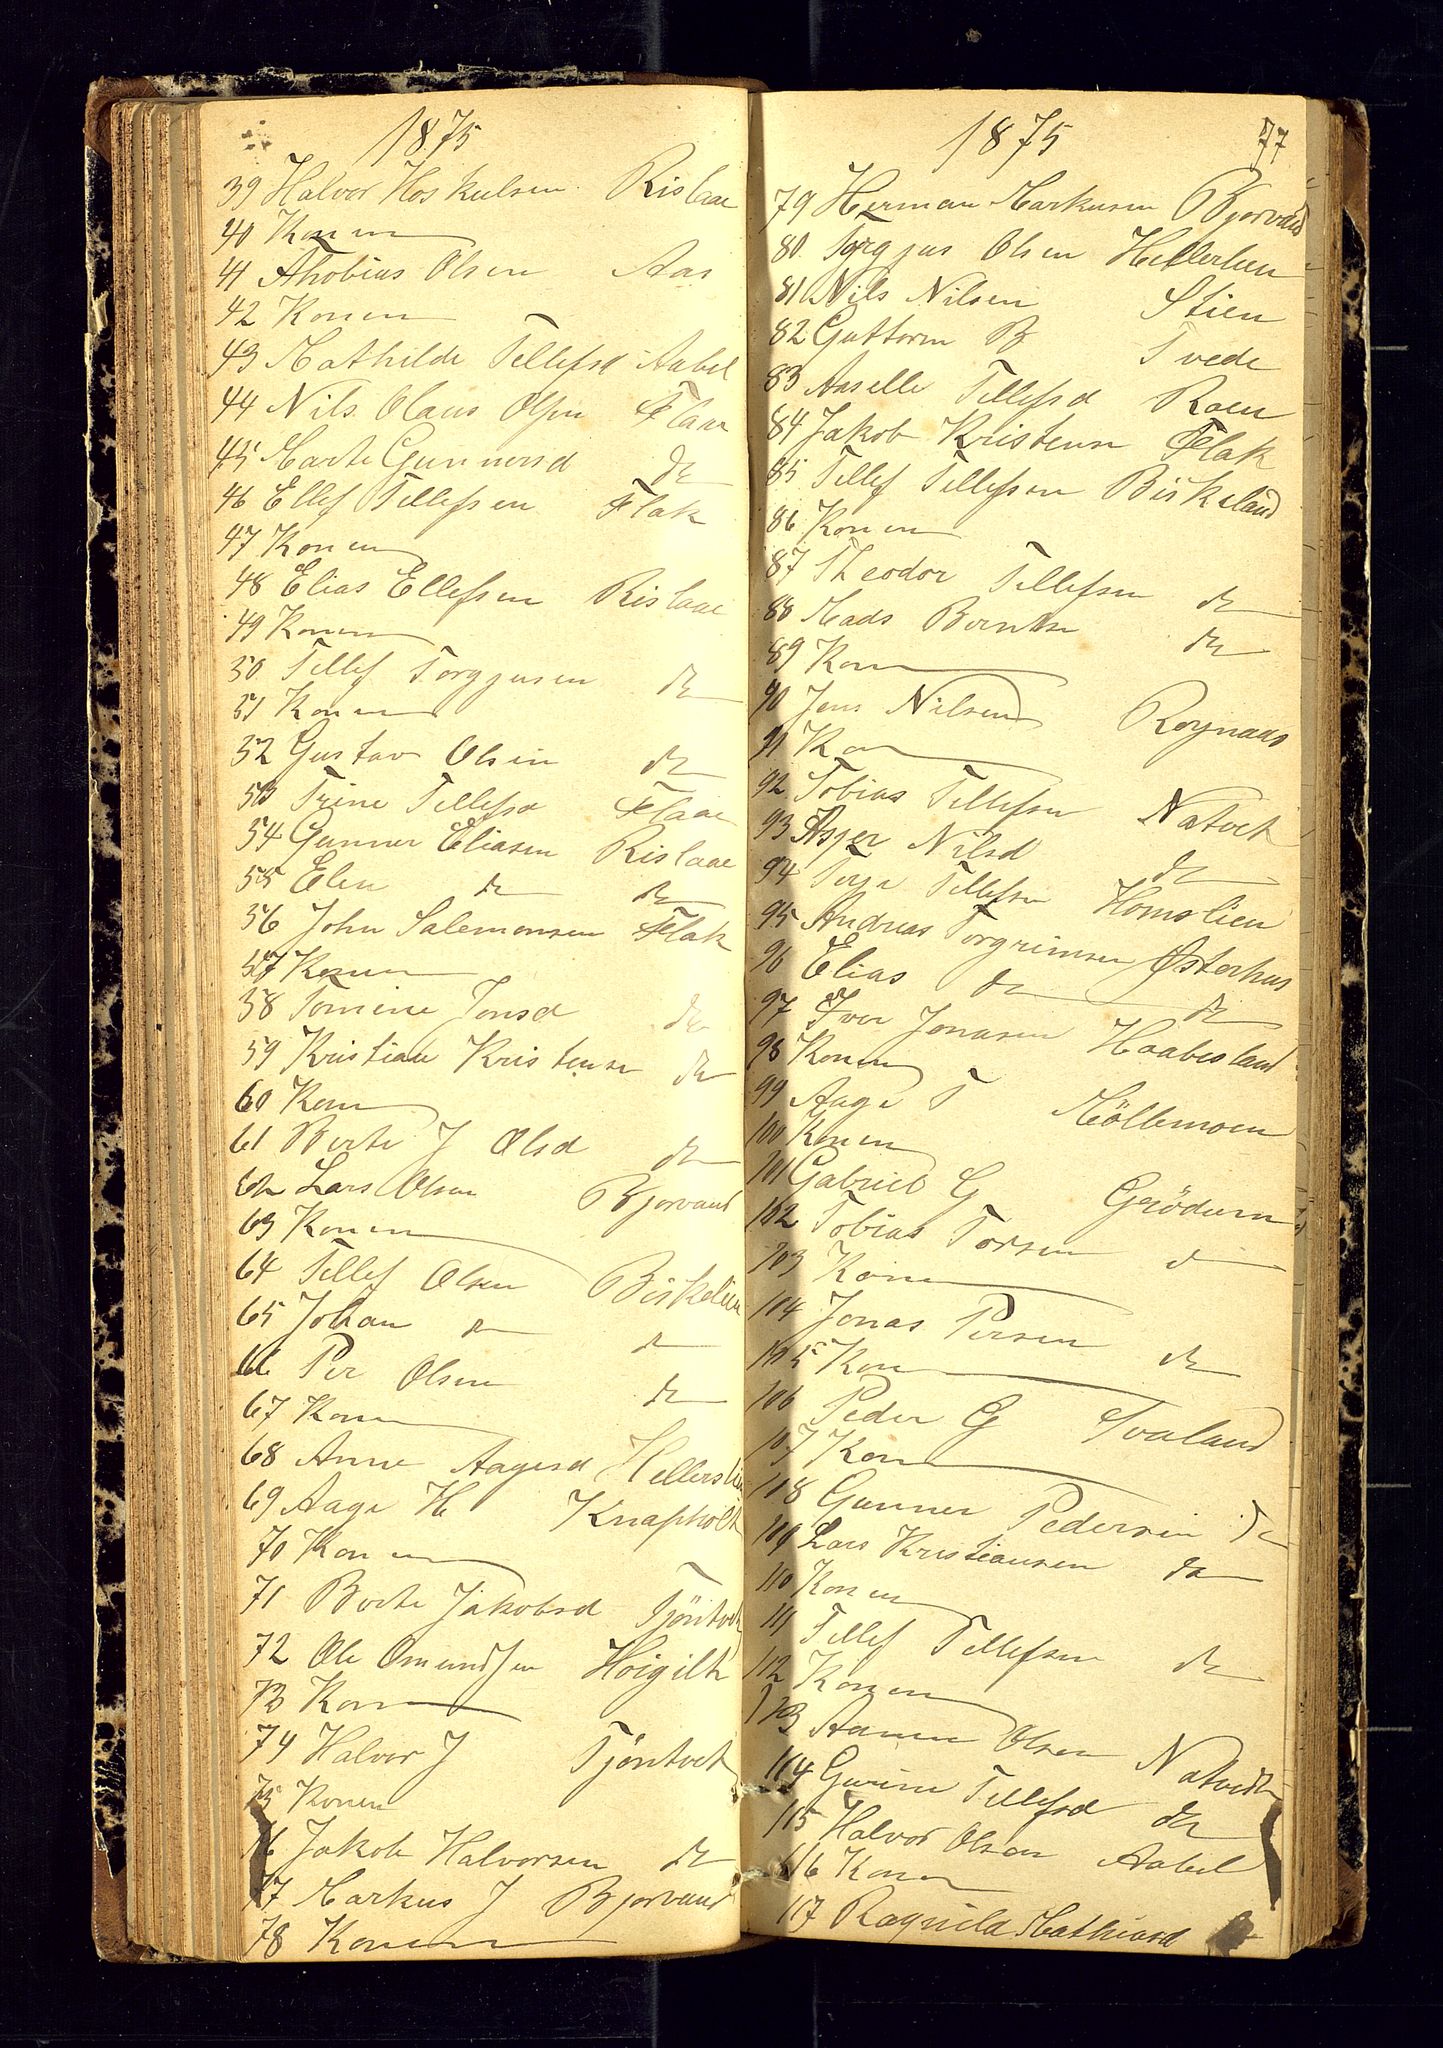 1875
39 Halvor Hoskulsen Rislaae
40 Konen
41 Thobias Olsen Aas
42 Konen
43 Mathilde Tellefsd Aabel
44 Nils Olaus Olsen Flaae
45 Marte Gunnersd do
46 Ellef Tellefsen Flak
47 Konen
48 Elias Ellefsen Rislaae
49 Konen
50 Tellef Torgjusen do
51 Konen
52 Gustav Olsen do
53 Trine Tellefsd Flaae
54 Gunner Eliasen Rislaae
55 Elen do do
56 John Salemonsen Flak
57 Konen
58 Tomine Jonsd do
59 Kristian Kristensen do
60 Konen
61 Berte J Olsd do
62 Lars Olsen Bjorvand
63 Konen
64 Tellef Olsen Birkelien
65 Johan do do
66 Per Olsen do
67 Konen
68 Anne Aagesd Hellerslien
69 Aage H Knapholt
70 Konen
71 Berte Jakobsd Tjöntvet
72 Ole Omundsen Höigilt
73 Konen
74 Halvor J Tjöntvet
75 Konen
76 Jakob Halvorsen do
77 Markus J Bjorvand
78 Konen
1875 77
79 Herman Markusen Bjorvand
80 Torgjus Olsen Hellerlien
81 Nils Nilsen Stien
82 Guttorm B Tvede
83 Anselle Tellefsd Roen
84 Jakob Kristensen Flak
85 Tellef Tellefsen Birkeland
86 Konen
87 Theodor Tellefsen do
88 Mads Berntsen do
89 Konen
90 Jens Nilsen Roynaas
91 Konen
92 Tobias Tellefsen Natvet
93 Asjer Nilsd do
94 Terje Tellefsen Homslien
95 Andreas Torgrimsen Østerhus
96 Elias do do
97 Iver Jonasen Haabesland
98 Konen
99 Aage T Möllemoen
100 Konen
101 Gabriel G Grödum
102 Tobias Torsen do
103 Konen
104 Jonas Persen
105 Konen do
106 Peder G Tvaland
107 Konen
108 Gunner Pedersen do
109 Lars Kristiansen do
110 Konen
111 Tellef Tellefsen do
112 Konen
113 Aanen Olsen Natvedt
114 Gurine Tellefsd do
115 Halvor Olsen Aabel
116 Konen
117 Ragnild Mathiasd